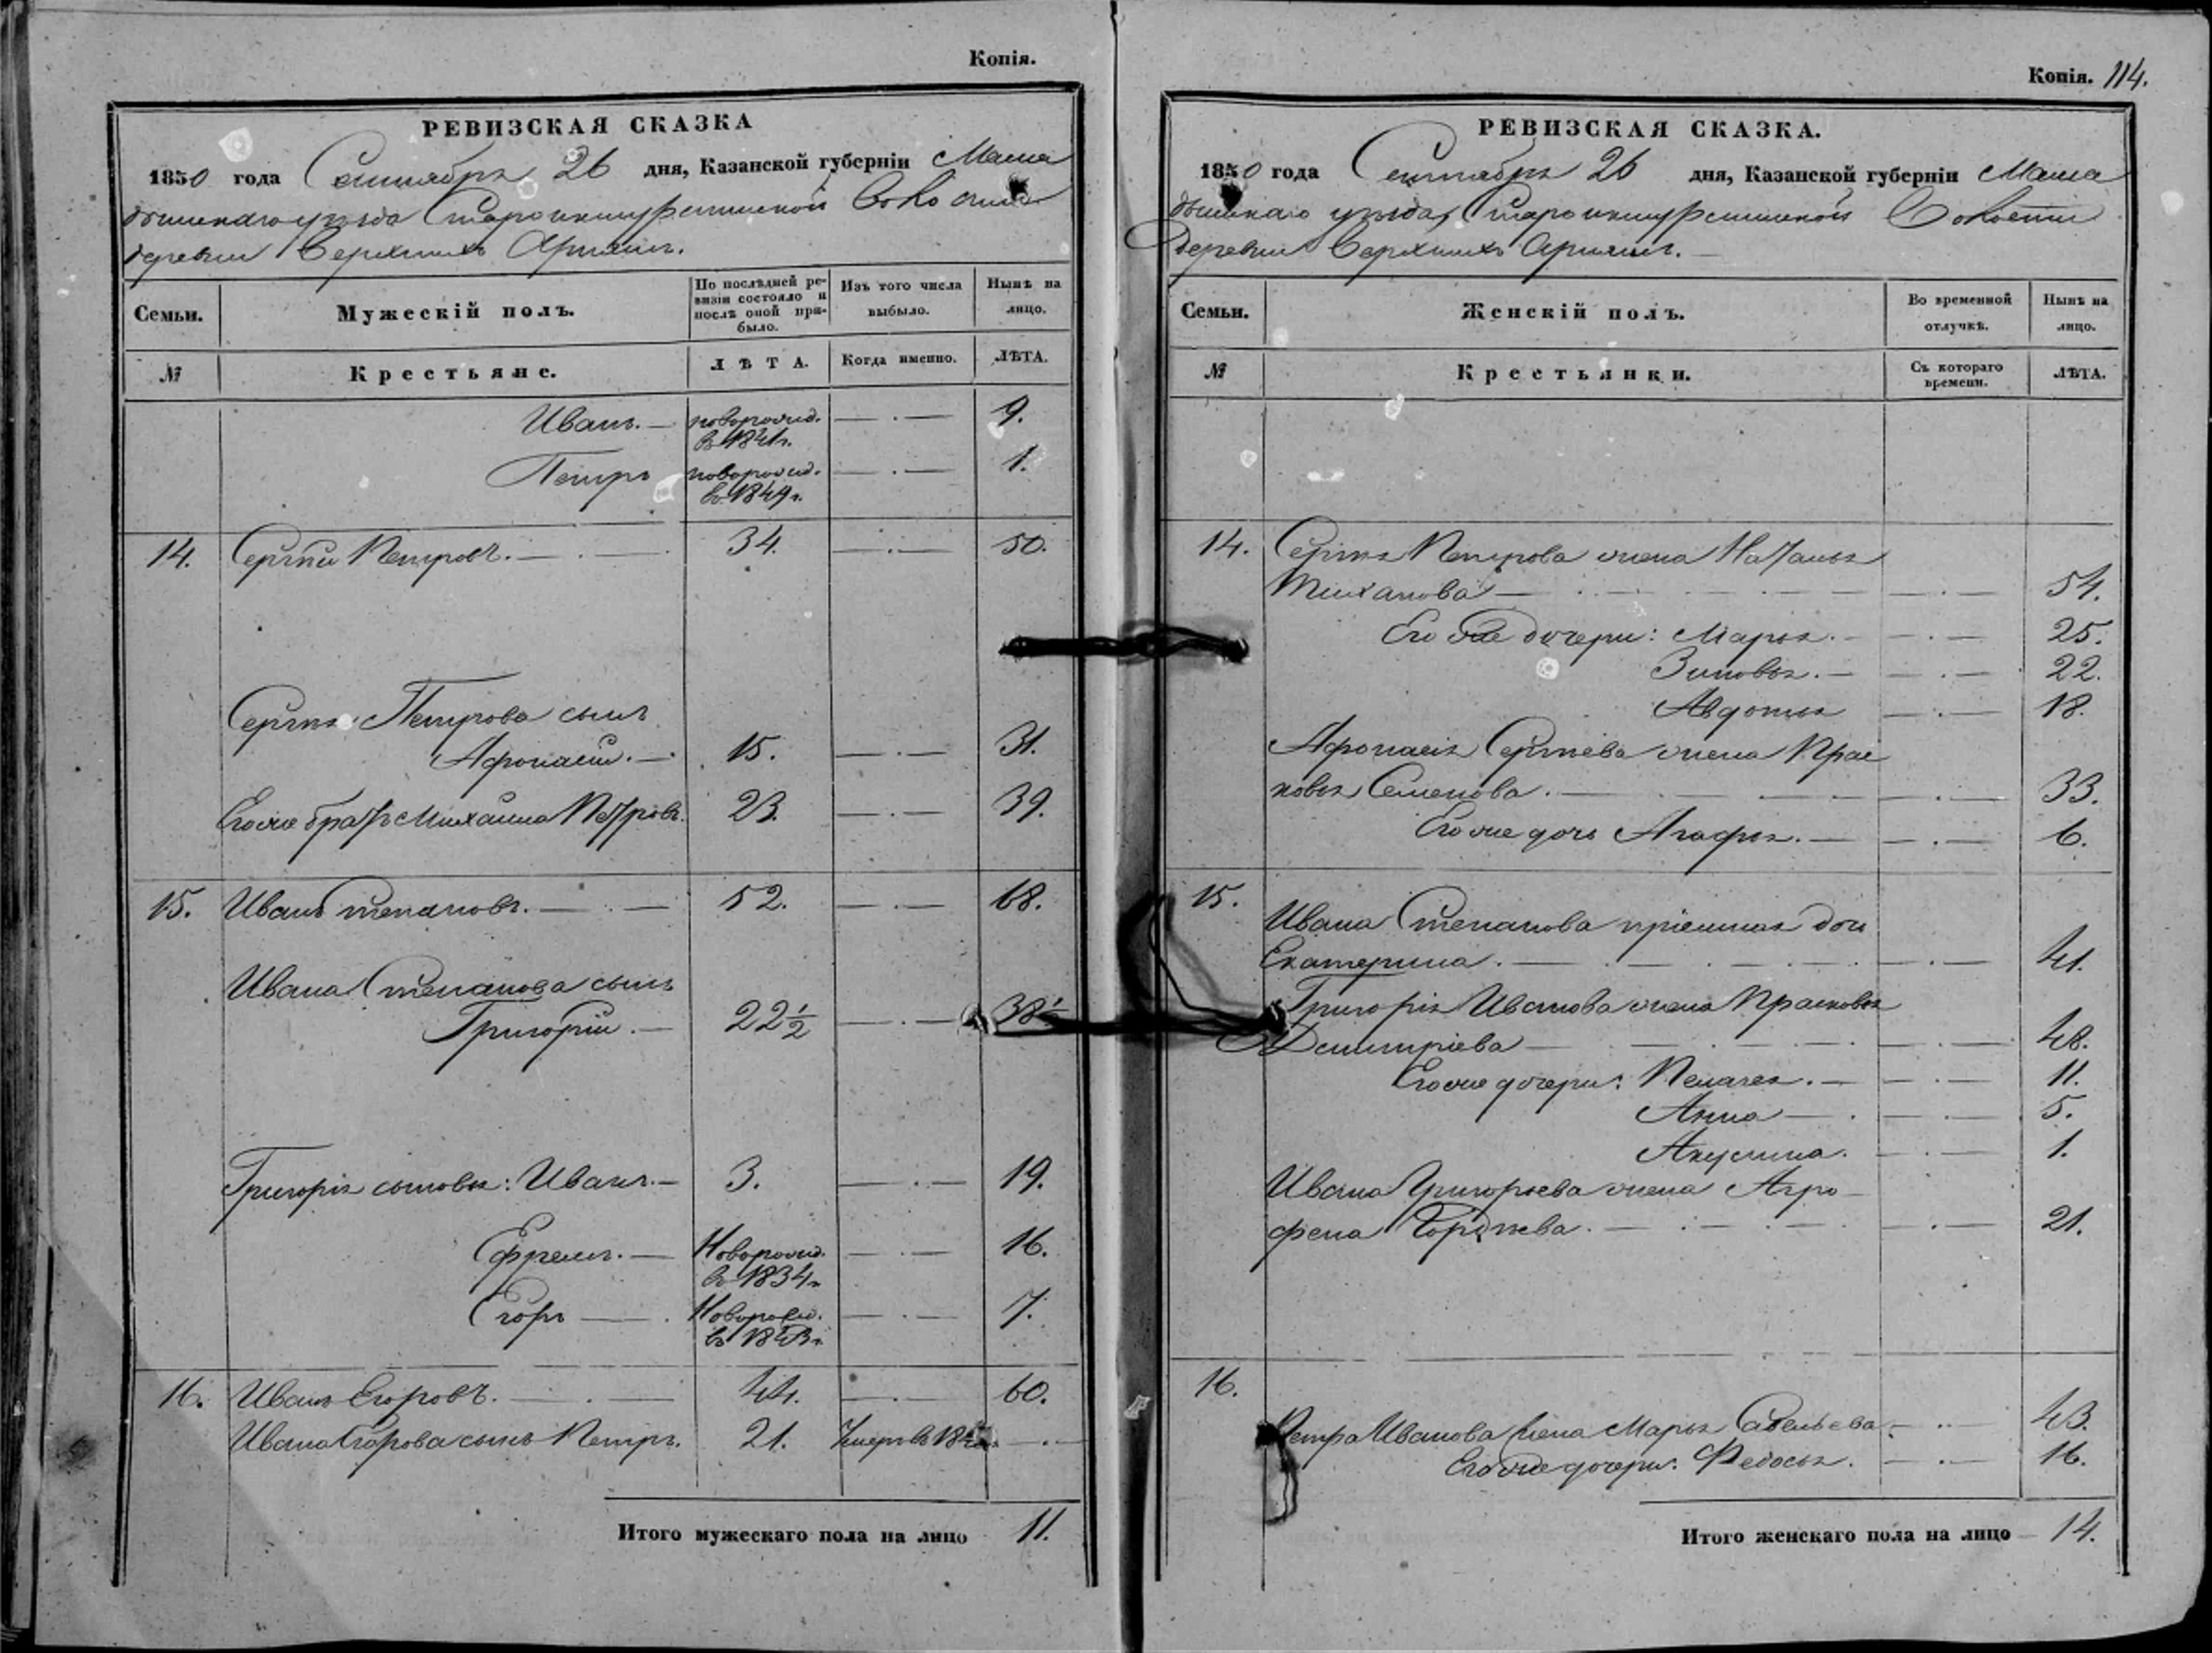 Копія.
РЕВИЗСКАЯ СКАЗКА
1850 года Сентября 26 дня, Казанской губерніи Мама
дышскаго уѣзда Староикшурминской Волости
деревни Верхнихъ Аришъ.
Семьи. Мужескій полъ. По послѣдней ре- Изъ того числа Нынѣ на
визіи состояло и
послѣ оной при- выбыло. лицо.
было.
№ Крестьяне. ЛѢТА. Когда именно. ЛѢТА.
Иванъ. — новорожд. — . — 9.
въ 1841 г.
Петръ новорожд. — . — 1.
въ 1849 г.
14. Сергѣй Петровъ. — . — 34. — . — 50.
Сергѣя Петрова сынъ
Афонасій. — 15. — . — 31.
Его же братъ Михаила Петровъ. 23. — . — 39.
15. Иванъ Степановъ. — . — 52. — . — 68.
Ивана Степанова сынъ
Григорій. — 22½ — . — 38½
Григорія сыновья: Иванъ. — 3. — . — 19.
Ефремъ. — Новорожд. — . — 16.
въ 1834 г.
Егоръ — . Новорожд. — . — 7.
въ 1843 г.
16. Иванъ Егоровъ. — . — 44. — . — 60.
Ивана Егорова сынъ Петръ. 21. Умеръ въ — . —
Итого мужескаго пола на лицо 11.
Копія. 114.
РЕВИЗСКАЯ СКАЗКА.
1850 года Сентября 26 дня, Казанской губерніи Мама
дышскаго уѣзда, Староикшурминской Волости
деревни Верхнихъ Аришъ. —
Семьи. Женскій полъ. Во временной Нынѣ на
отлучкѣ. лицо.
№ Крестьянки. Съ котораго ЛѢТА.
времени.
14. Сергѣя Петрова жена Наталья
Тиханова — . — . — 54.
Его же дочери: Марья. — — . — 25.
Зиновья. — — . — 22.
Авдотья — . — 18.
Афонасія Сергѣева жена Прас
ковья Семенова. — . — . — 33.
Его же дочь Агафья. — — . — 6.
15.
Ивана Степанова пріемная дочь
Екатерина. — . — . — 41.
Григорія Иванова жена Прасковья
Дмитріева — . — . — 48.
Его же дочери: Пелагея. — — . — 11.
Анна — . — . — 5.
Акулина. — . — 1.
Ивана Григорьева жена Агро-
фена Гордѣева. — . — . — 21.
16.
Петра Иванова жена Марья Савельева — . — 43.
Его же дочери: Федосья. — . — 16.
Итого женскаго пола на лицо — 14.